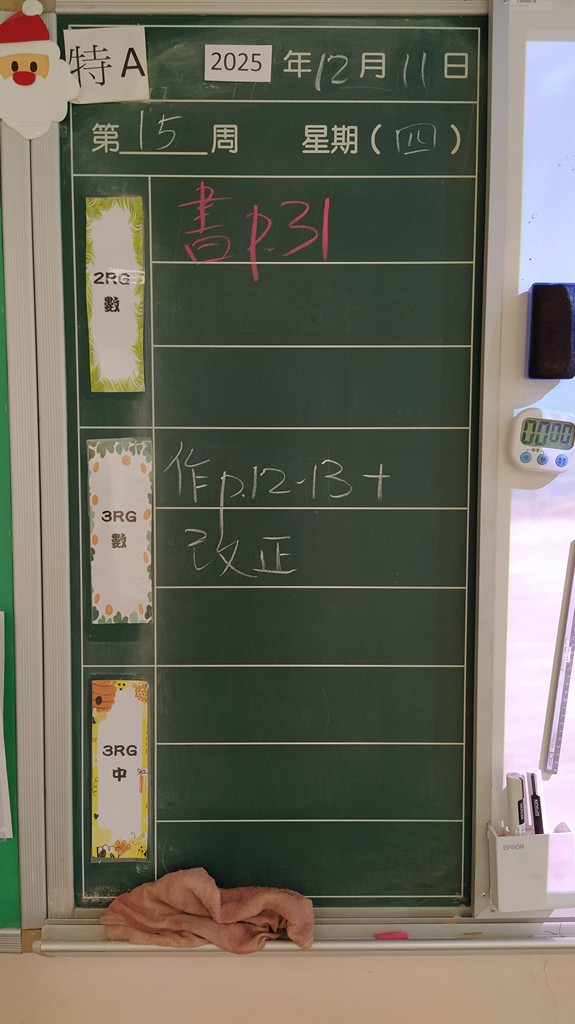 特A
2025 年 12 月 11 日
第 15 周 星期 ( 四 )
2RG
數
書 p.31
3RG
數
作 p.12-13 +
改正
3RG
中
00:00
EPSON